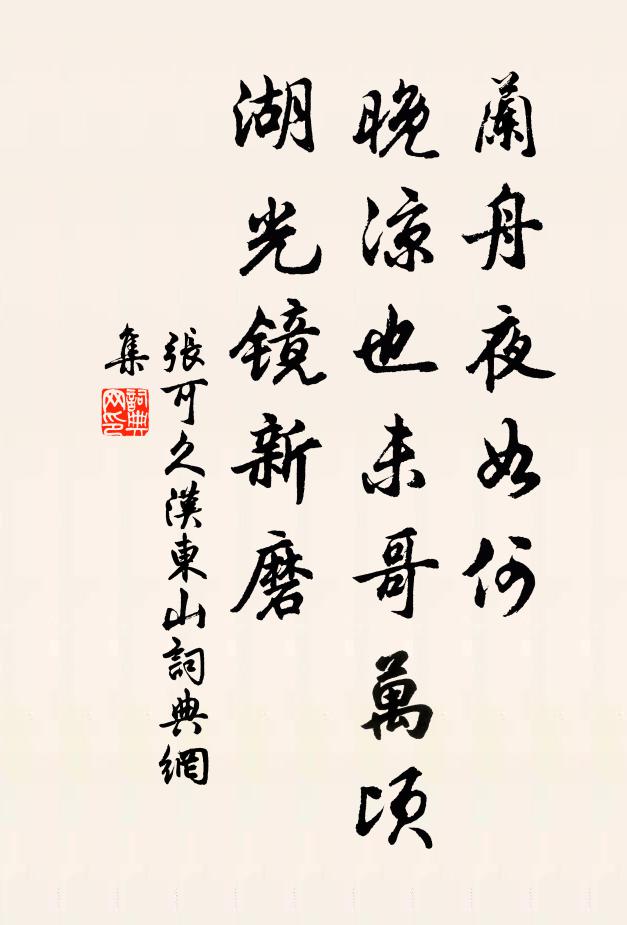 蘭舟夜如何
晚涼也未哥萬頃
湖光鏡新磨
張可久漢東山詞典網
集
詞典
网印